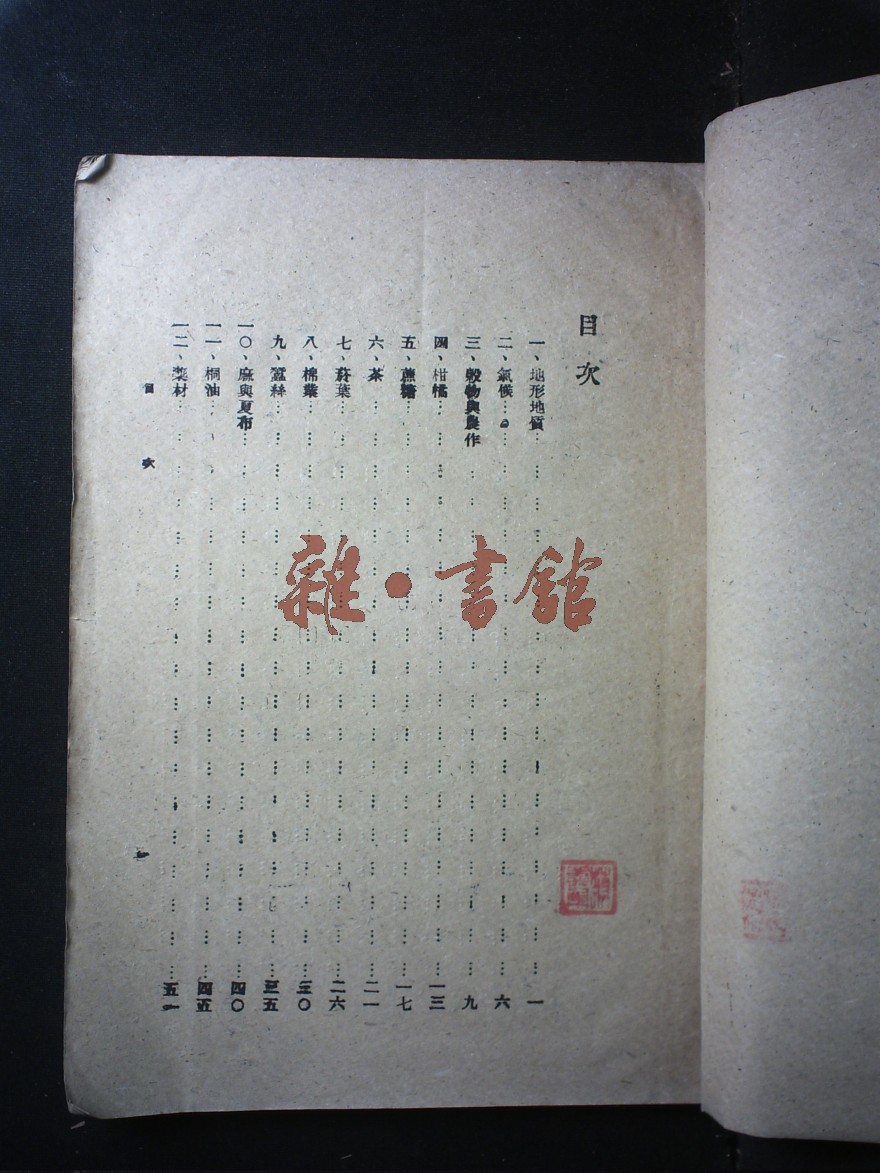 目次
一、地形地質…………………一
二、氣候…………………六
三、穀物與農作…………………九
四、柑橘…………………一三
五、蔗糖…………………一七
六、茶…………………二一
七、菸葉…………………二六
八、棉業…………………三〇
九、蠶絲…………………三五
一〇、麻與夏布…………………四〇
一一、桐油…………………四五
一二、藥材…………………五一
目次
一
雜·書館